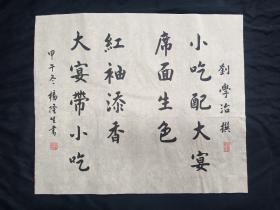 劉學治撰
小吃配大宴
席面生色
紅袖添香
大宴帶小吃
甲午冬楊隆生書